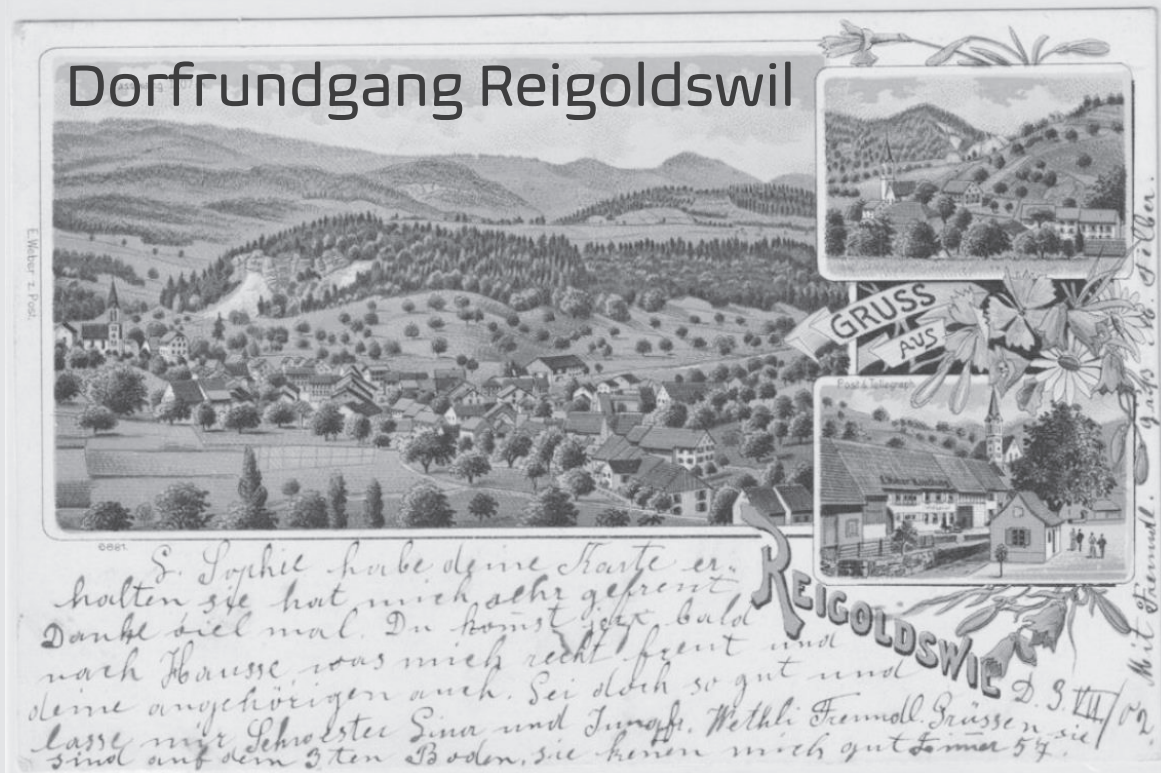 Dorfrundgang Reigoldswil
E. Weber z. Post.
GRUSS
AUS
Post & Telegraph
REIGOLDSWIL
6681.
S. Sophie habe deine Karte er-
halten sie hat mich sehr gefreut
Danke viel mal. Du komst jezt bald
nach Hausse was mich recht freut und
deine angehörigen auch. Sei doch so gut und
lasse mir Schwester Sinor und Jungfr. Wethli Freundl. Grüssen sie
sind auf dem 3ten Boden, sie kenen mich gut Zimmer 57.
D. 3. VII/02
Mit Freundl. gruß